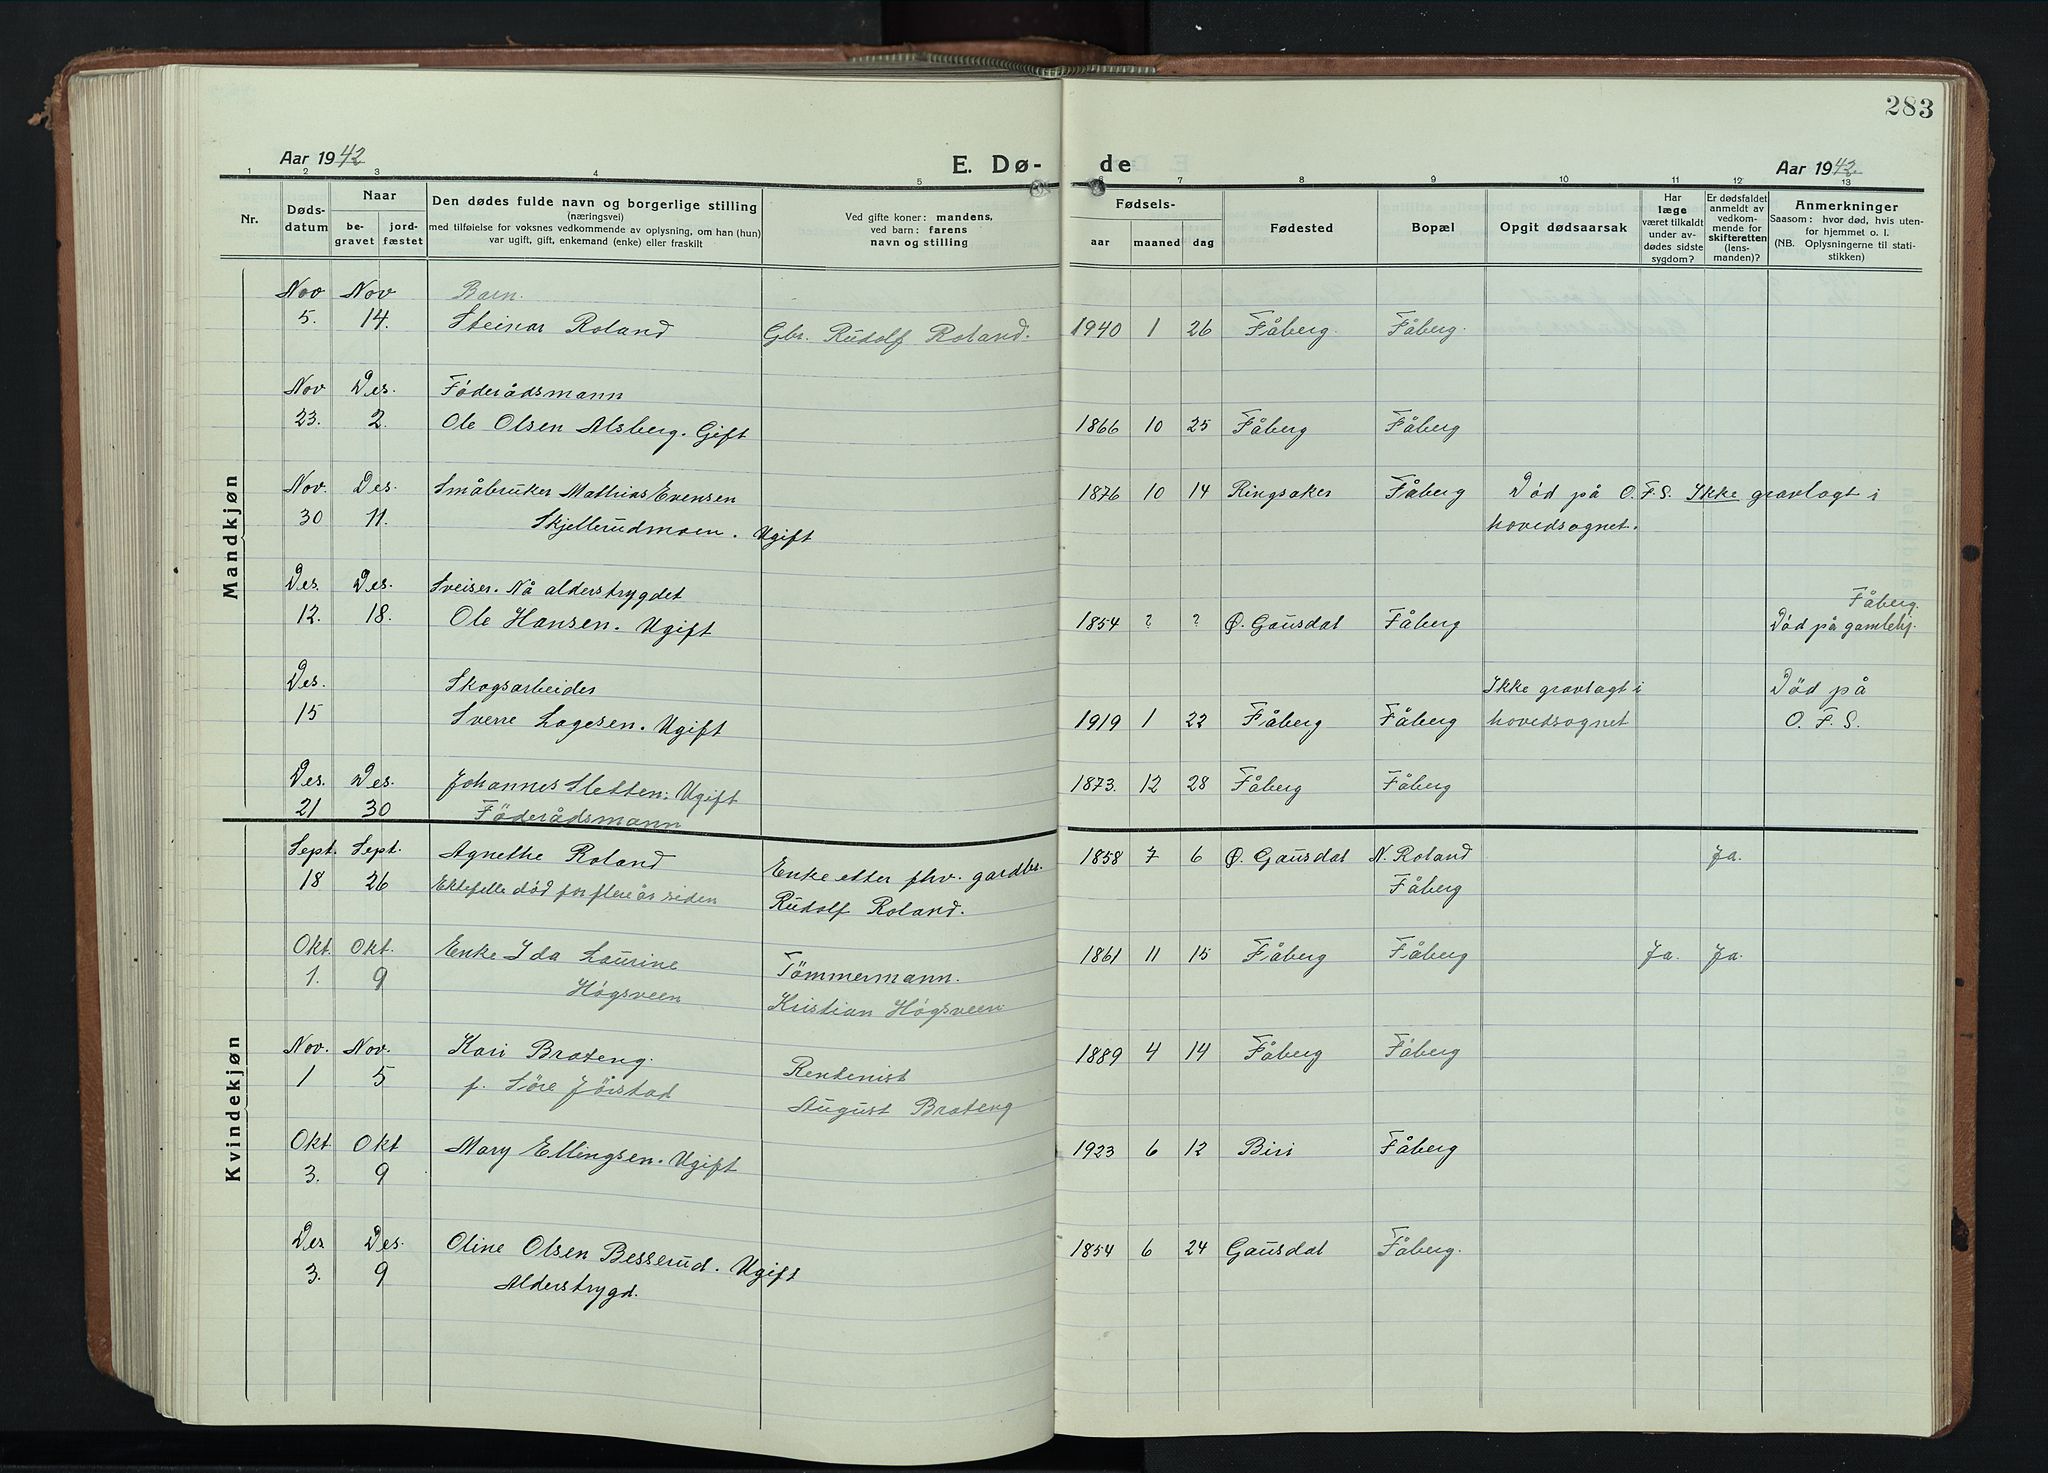 283
Aar 1942
E. Dø-
de
Aar 1942
1 2 3 4 5 6 7 8 9 10 11 12 13
Nr.
Døds-
datum
Naar
be-
gravet
jord-
fæstet
Den dødes fulde navn og borgerlige stilling
(næringsvei)
med tilføielse for voksnes vedkommende av oplysning, om han (hun)
var ugift, gift, enkemand (enke) eller fraskilt
Ved gifte koner: mandens,
ved barn: farens
navn og stilling
Fødsels-
aar maaned dag
Fødested
Bopæl
Opgit dødsaarsak
Har
læge
været tilkaldt
under av-
dødes sidste
sygdom?
Er dødsfaldet
anmeldt av
vedkom-
mende for
skifteretten
(lens-
manden)?
Anmerkninger
Saasom: hvor død, hvis uten-
for hjemmet o. l.
(NB. Oplysningerne til stati-
stikken)
Mandkjøn
Nov Nov Barn.
5. 14. Steinar Roland Gbr. Rudolf Roland. 1940 1 26 Fåberg. Fåberg.
Nov Des. Föderådsmann
23. 2. Ole Olsen Alsberg. Gift 1866 10 25 Fåberg Fåberg
Nov. Des. Småbruker Mathias Evensen 1876 10 14 Ringsaker Fåberg Död på O.F.S. Ikke gravlagt i
30 11. Skjellerudmoen. Ugift hovedsognet.
Des. Des. Sveiser. Nå alderstrygdet Fåberg.
12. 18. Ole Hansen. Ugift 1854 ? ? Ø. Gausdal Fåberg Död på gamlehj.
Des. Skogsarbeider Ikke gravlagt i Död på
15 Sverre Lagesen. Ugift 1919 1 22 Fåberg Fåberg hovedsognet O.F.S.
Des. Des. Johannes Sletten. Ugift 1873. 12 28 Fåberg Fåberg
21 30 Föderådsmann
Kvindekjøn
Sept. Sept. Agnethe Roland Enke etter fhv. gardbr. 1858 7 6 Ø. Gausdal N. Roland Ja.
18 26 Ektefelle död for flere år siden Rudolf Roland. Fåberg
Okt. Okt. Enke Ida Laurine Tömmermann. 1861 11 15 Fåberg Fåberg Ja. Ja.
1. 9 Högsveen Kristian Högsveen
Nov. Nov. Kari Brateng. Rentenist 1889 4 14 Fåberg Fåberg
1 5 f. Söre Jörstad August Brateng
Okt. Okt Mary Ellingsen. Ugift 1923 6 12 Biri Fåberg
3. 9
Des Des. Oline Olsen Besserud. Ugift 1854 6 24 Gausdal Fåberg.
3. 9 Alderstrygd.